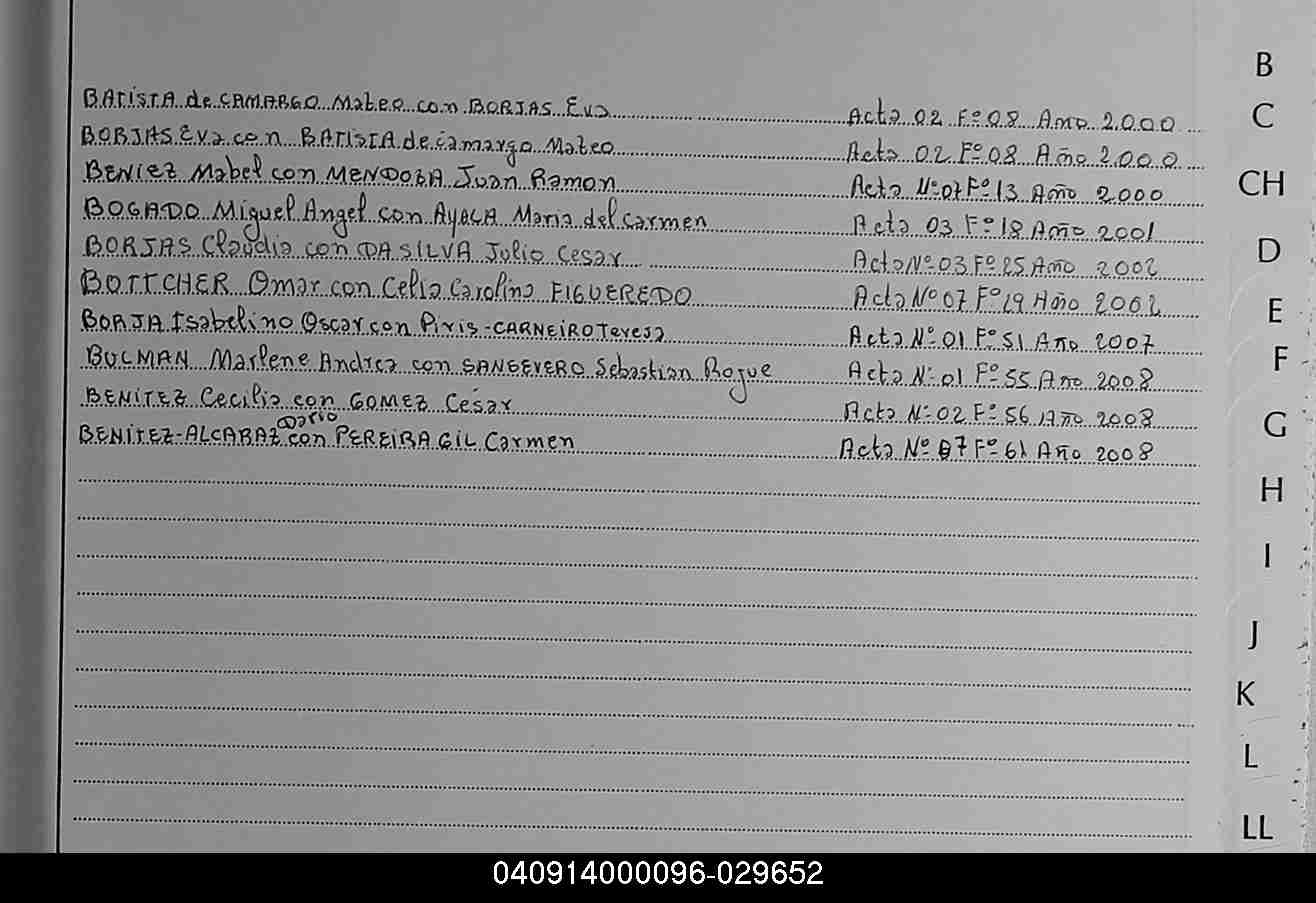 BATISTA de CAMARGO Mateo con BORJAS Eva Acta 02 Fº 08 Año 2.000
BORJAS Eva con BATISTA de camargo Mateo Acta 02 Fº 08 Año 2.000
BENIEZ Mabel con MENDOZA Juan Ramon Acta Nº 07 Fº 13 Año 2000
BOGADO Miguel Angel con AYALA Maria del carmen Acta 03 Fº 18 Año 2001
BORJAS Claudia con DA SILVA Julio Cesar Acta Nº 03 Fº 25 Año 2002
BOTTCHER Omar con Celia Carolina FIGUEREDO Acta Nº 07 Fº 29 Año 2002
BORJA Isabelino Oscar con Piris - CARNEIRO Teresa Acta Nº 01 Fº 51 Año 2007
BULMAN Marlene Andrea con SANSEVERO Sebastian Roque Acta Nº 01 Fº 55 Año 2008
BENÍTEZ Cecilia con GOMEZ César Acta Nº 02 Fº 56 Año 2008
BENÍTEZ-ALCARAZ Dario con PEREIRA GIL Carmen Acta Nº 07 Fº 61 Año 2008
B
C
CH
D
E
F
G
H
I
J
K
L
LL
040914000096-029652